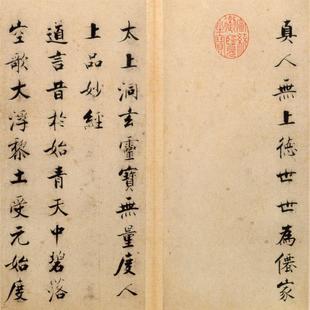 真人無上德世世為僊家
太上洞玄靈寶無量度人
上品妙經
道言昔於始青天中碧落
空歌大浮黎土受元始度